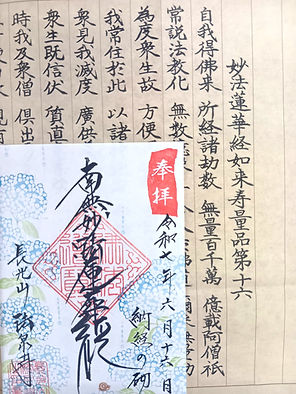 妙法蓮華経如来寿量品第十六
自我得佛来 所経諸劫数 無量百千萬 億載阿僧祇
常説法教化 無数
為度衆生故 方便
我常住於此 以諸
衆見我滅度 廣供
衆生既信伏 質直
時我及衆僧 倶出
奉拝
令和七年六月十六日
南無妙法蓮華経
納経の砌
長光山